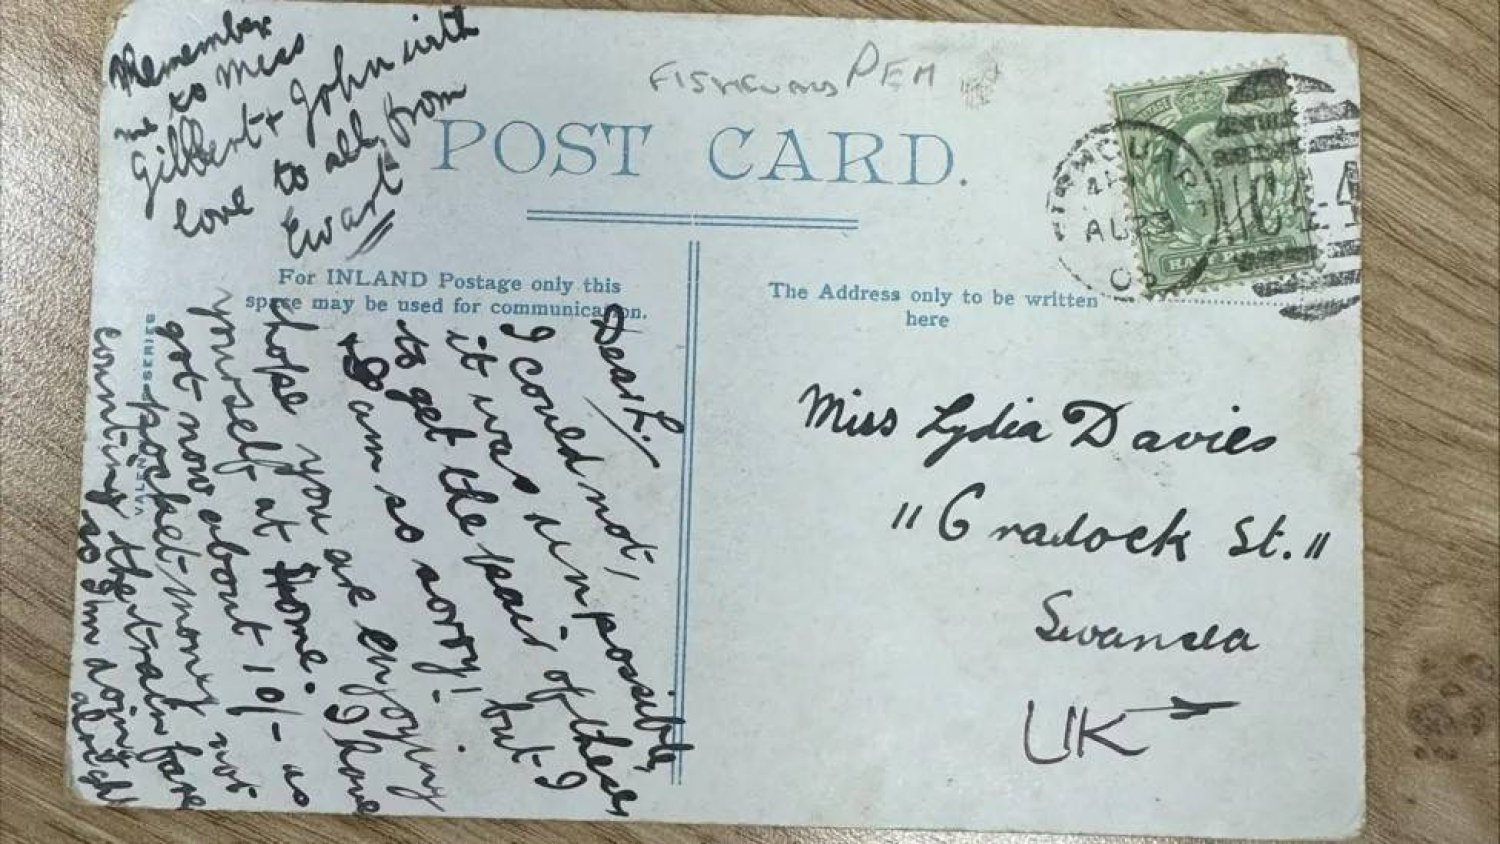 Remember
me to Miss
Gilbert + John with
love to all, from
Ewart
FISHGUARD PEM
POST CARD.
For INLAND Postage only this
space may be used for communication.
The Address only to be written
here
FISHGUARD
AU 23
03
HALFPENNY
Dear L.
I could not,
it was impossible,
to get the pair of these
& I am so sorry! but I
hope you are enjoying
yourself at Home. I have
got now about 10/- as
pocket money not
counting the train fare
so I'm doing
alright
SERIES
Miss Lydia Davies
"Cradock St."
Swansea
UK